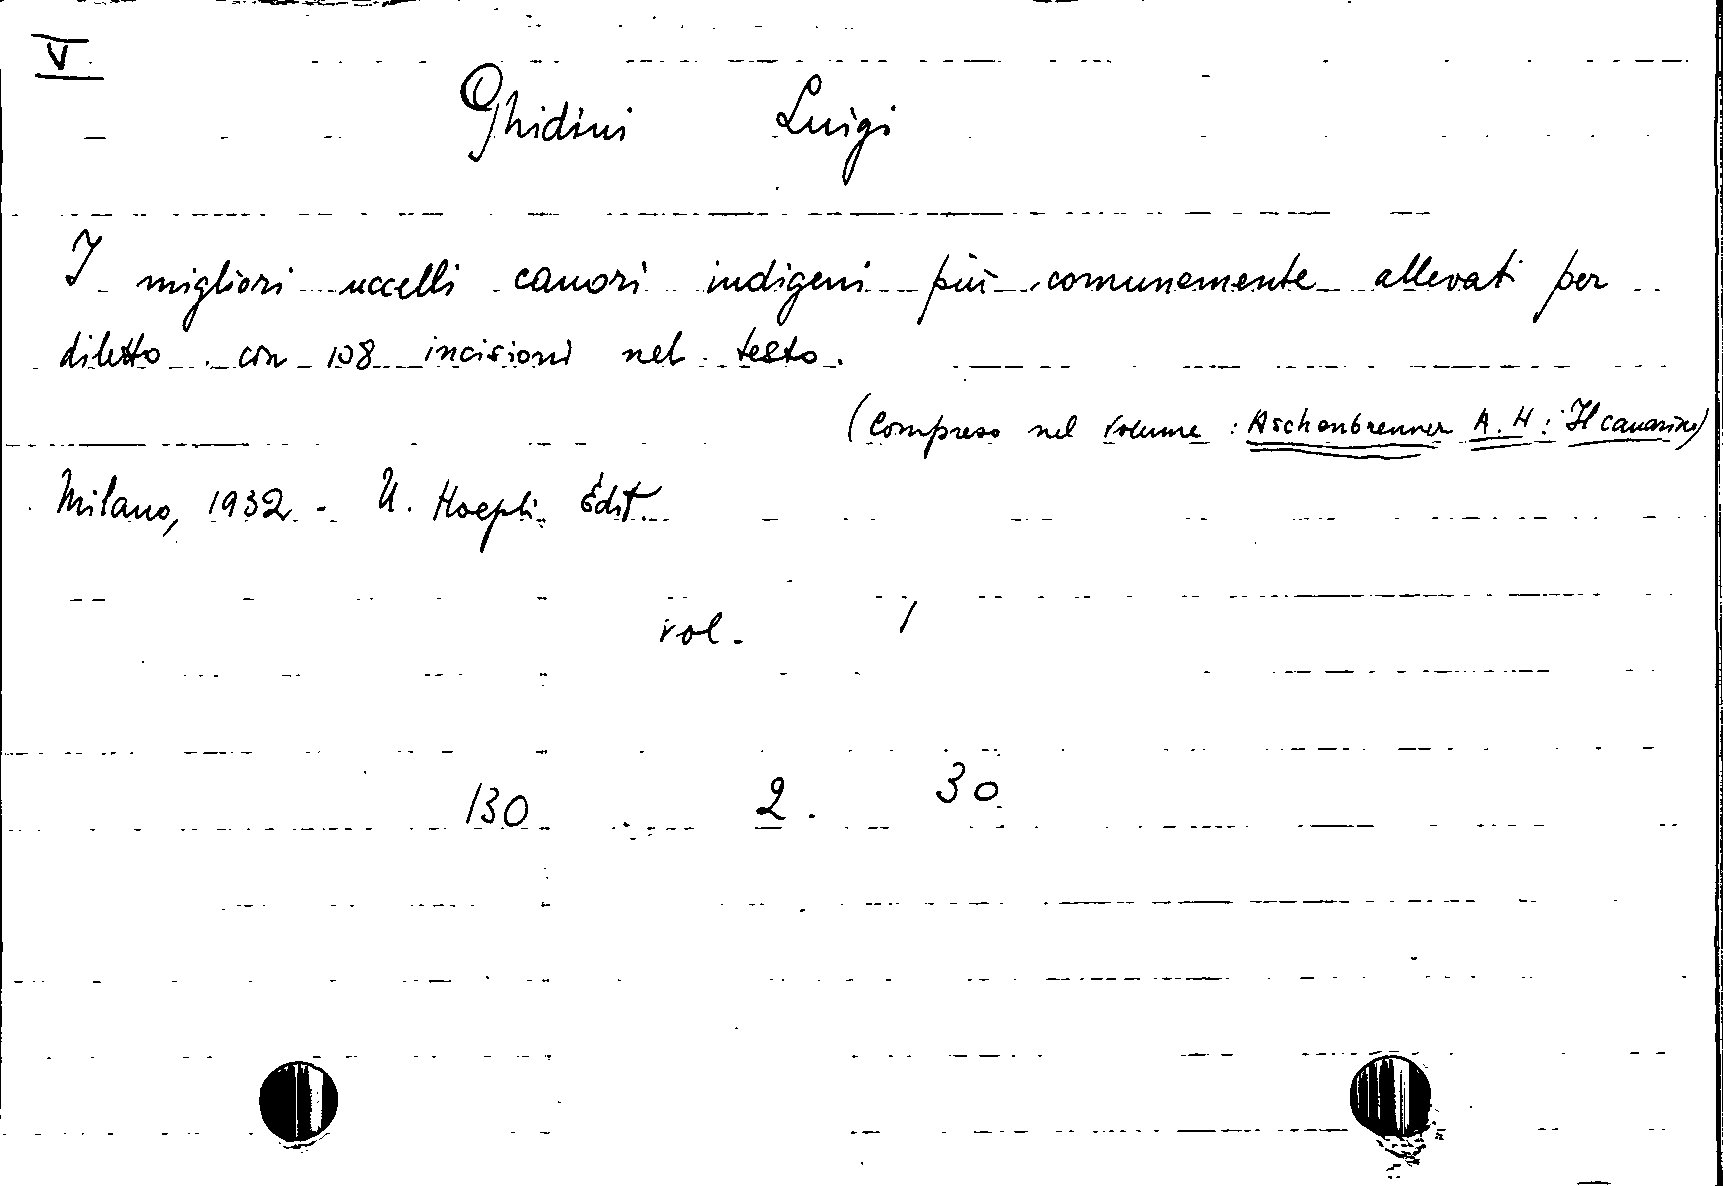 V
Ghidini Luigi
I migliori uccelli canori indigeni più comunemente allevati per
diletto. con 108 incisioni nel testo.
(Compreso nel volume: Aschenbrenner A. H: Il canarino)
Milano, 1932 - U. Hoepli Edit.
vol. 1
130 2. 30